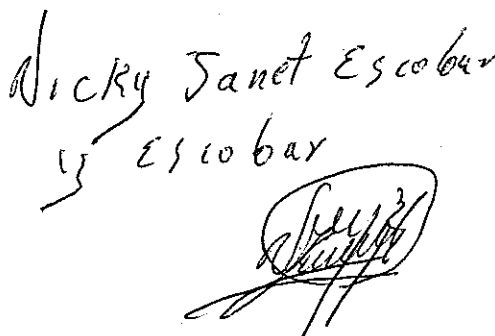 Nicky Janet Escobar
y Escobar